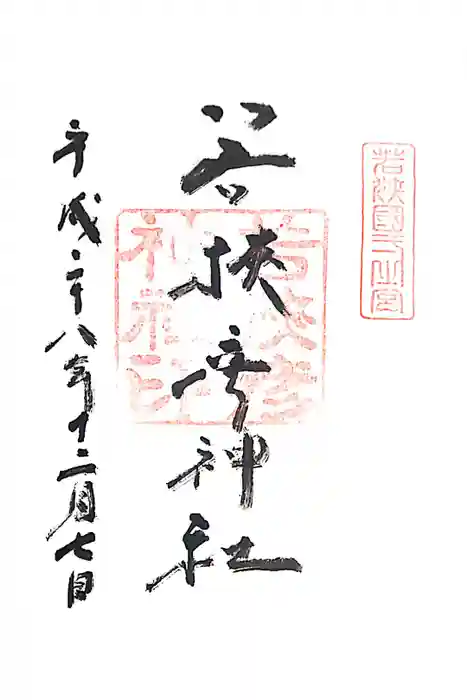 若狭國一之宮
若狭彦神社
平成二十八年十二月七日